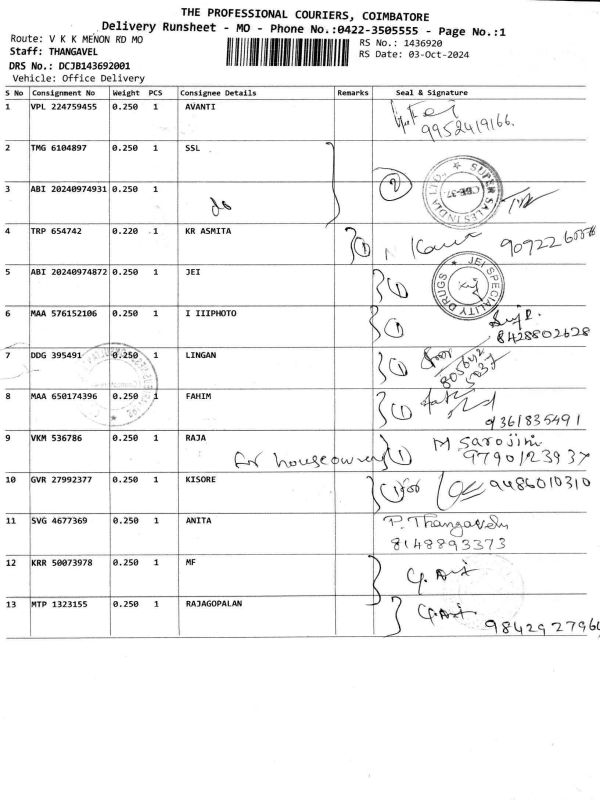 THE PROFESSIONAL COURIERS, COIMBATORE
Delivery Runsheet - MO - Phone No.:0422-3505555 - Page No.:1
Route: V K K MENON RD MO
RS No.: 1436920
Staff: THANGAVEL
RS Date: 03-Oct-2024
DRS No.: DCJB143692001
Vehicle: Office Delivery
S No Consignment No Weight PCS Consignee Details Remarks Seal & Signature
1 VPL 224759455 0.250 1 AVANTI
9952419166.
2 TMG 6104897 0.250 1 SSL
2
SUPER SALES INDIA LTD., CBE-37.
3 ABI 20240974931 0.250 1
do
4 TRP 654742 0.220 1 KR ASMITA
1
5 ABI 20240974872 0.250 1 JEI
1
JEI SPECIALITY DRUGS
6 MAA 576152106 0.250 1 I IIIPHOTO
1
8428802628
7 DDG 395491 0.250 1 LINGAN
1
8 MAA 650174396 0.250 1 FAHIM
1
9361835491
9 VKM 536786 0.250 1 RAJA
for houseowner 1 M Sarojini
9790123937
10 GVR 27992377 0.250 1 KISORE
1 9486010310
11 SVG 4677369 0.250 1 ANITA
P. Thangavelu
8148893373
12 KRR 50073978 0.250 1 MF
13 MTP 1323155 0.250 1 RAJAGOPALAN